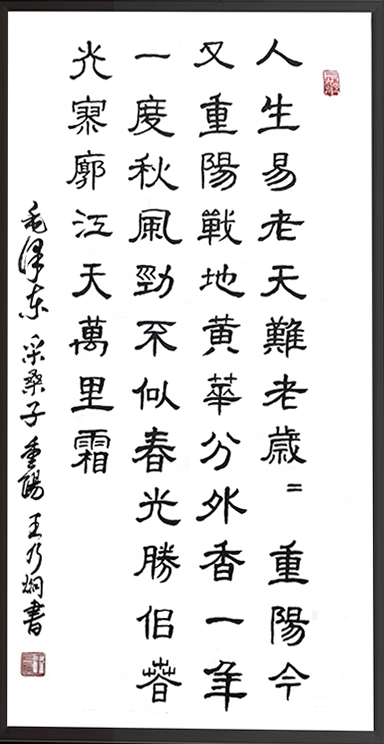 人生易老天難老歲〻重陽今
又重陽戰地黃華分外香一年
一度秋風勁不似春光勝佀萅
光寥廓江天萬里霜
毛泽东 采桑子 重陽 王乃炯書